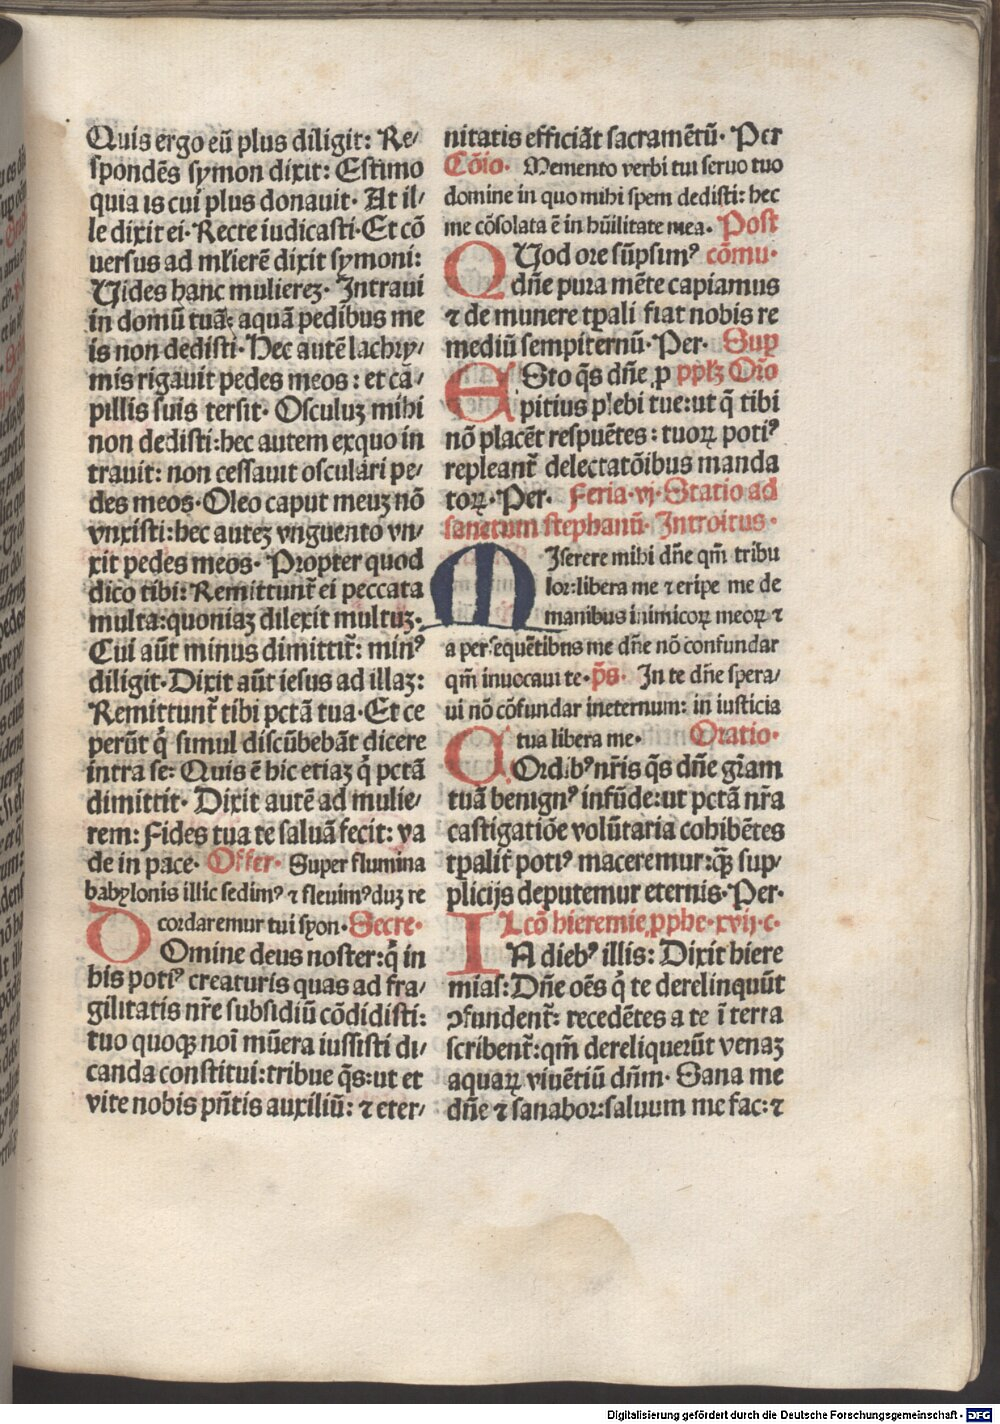 Quis ergo eū plus diligit: Re/
spondēs symon dixit: Estimo
quia is cui plus donauit· At il/
le dixit ei· Recte iudicasti· Et cō
uersus ad mlierē dixit symoni:
Uides hanc mulierez· Intraui
in domū tuā: aquā pedibus me
is non dedisti· Hec autē lachry/
mis rigauit pedes meos: et ca/
pillis suis tersit· Osculuz mihi
non dedisti: hec autem exquo in
trauit: non cessauit osculari pe/
des meos· Oleo caput meuz nō
vnxisti: hec autez vnguento vn/
xit pedes meos· Propter quod
dico tibi: Remittunt̄ ei peccata
multa: quoniaz dilexit multuz·
Cui aūt minus dimittit̄: minꝰ
diligit· Dixit aūt iesus ad illaz:
Remittunt̄ tibi pctā tua· Et ce
perūt q̇ simul discūbebāt dicere
intra se: Quis ē hic etiaz q̇ pctā
dimittit· Dixit autē ad mulie/
rem: Fides tua te saluā fecit: va
de in pace· Offer· Super flumina
babylonis illic sedimꝰ ⁊ fleuimꝰ duz re
cordaremur tui syon· Secre·
Domine deus noster: q̇ in
his potiꝰ creaturis quas ad fra/
gilitatis nr̄e subsidiū cōdidisti:
tuo quoqꝫ noī mūera iussisti di/
canda constitui: tribue q̄s: ut et
vite nobis pn̄tis auxiliū: ⁊ eter/
nitatis efficiāt sacramētū· Per
Cōio· Memento verbi tui seruo tuo
domine in quo mihi spem dedisti: hec
me cōsolata ē in hūilitate mea· Post
QUod ore sūpsimꝰ cōmu·
dn̄e pura mēte capiamus
⁊ de munere tp̄ali fiat nobis re
mediū sempiternū· Per· Sup
ESto q̄s dn̄e ꝓ pplꝫ Orō
pitius plebi tue: ut q̄ tibi
nō placēt respuētes: tuoꝝ potiꝰ
repleant̄ delectatōibus manda
toꝝ· Per· Feria·vj· Statio ad
sanctum stephanū· Introitus·
MIserere mihi dn̄e qm̄ tribu
lor: libera me ⁊ eripe me de
manibus inimicoꝝ meoꝝ ⁊
a persequētibus me dn̄e nō confundar
qm̄ inuocaui te· p̄s· In te dn̄e spera/
ui nō cōfundar ineternum: in iusticia
tua libera me· Oratio·
COrdibꝰ nr̄is q̄s dn̄e gr̄am
tuā benignꝰ infūde: ut pctā nr̄a
castigatiōe volūtaria cohibētes
tp̄alit̄ potiꝰ maceremur: qꝫ sup/
plicijs deputemur eternis· Per·
Lcō hieremie ꝓphe· xvij·c·
IN diebꝰ illis: Dixit hiere
mias: Dn̄e oēs q̇ te derelinquūt
ꝯfundent̄: recedētes a te ī terra
scribent̄: qm̄ dereliquerūt venaz
aquaꝝ viuētiū dn̄m· Sana me
dn̄e ⁊ sanabor: saluum me fac: ⁊
Digitalisierung gefördert durch die Deutsche Forschungsgemeinschaft - DFG